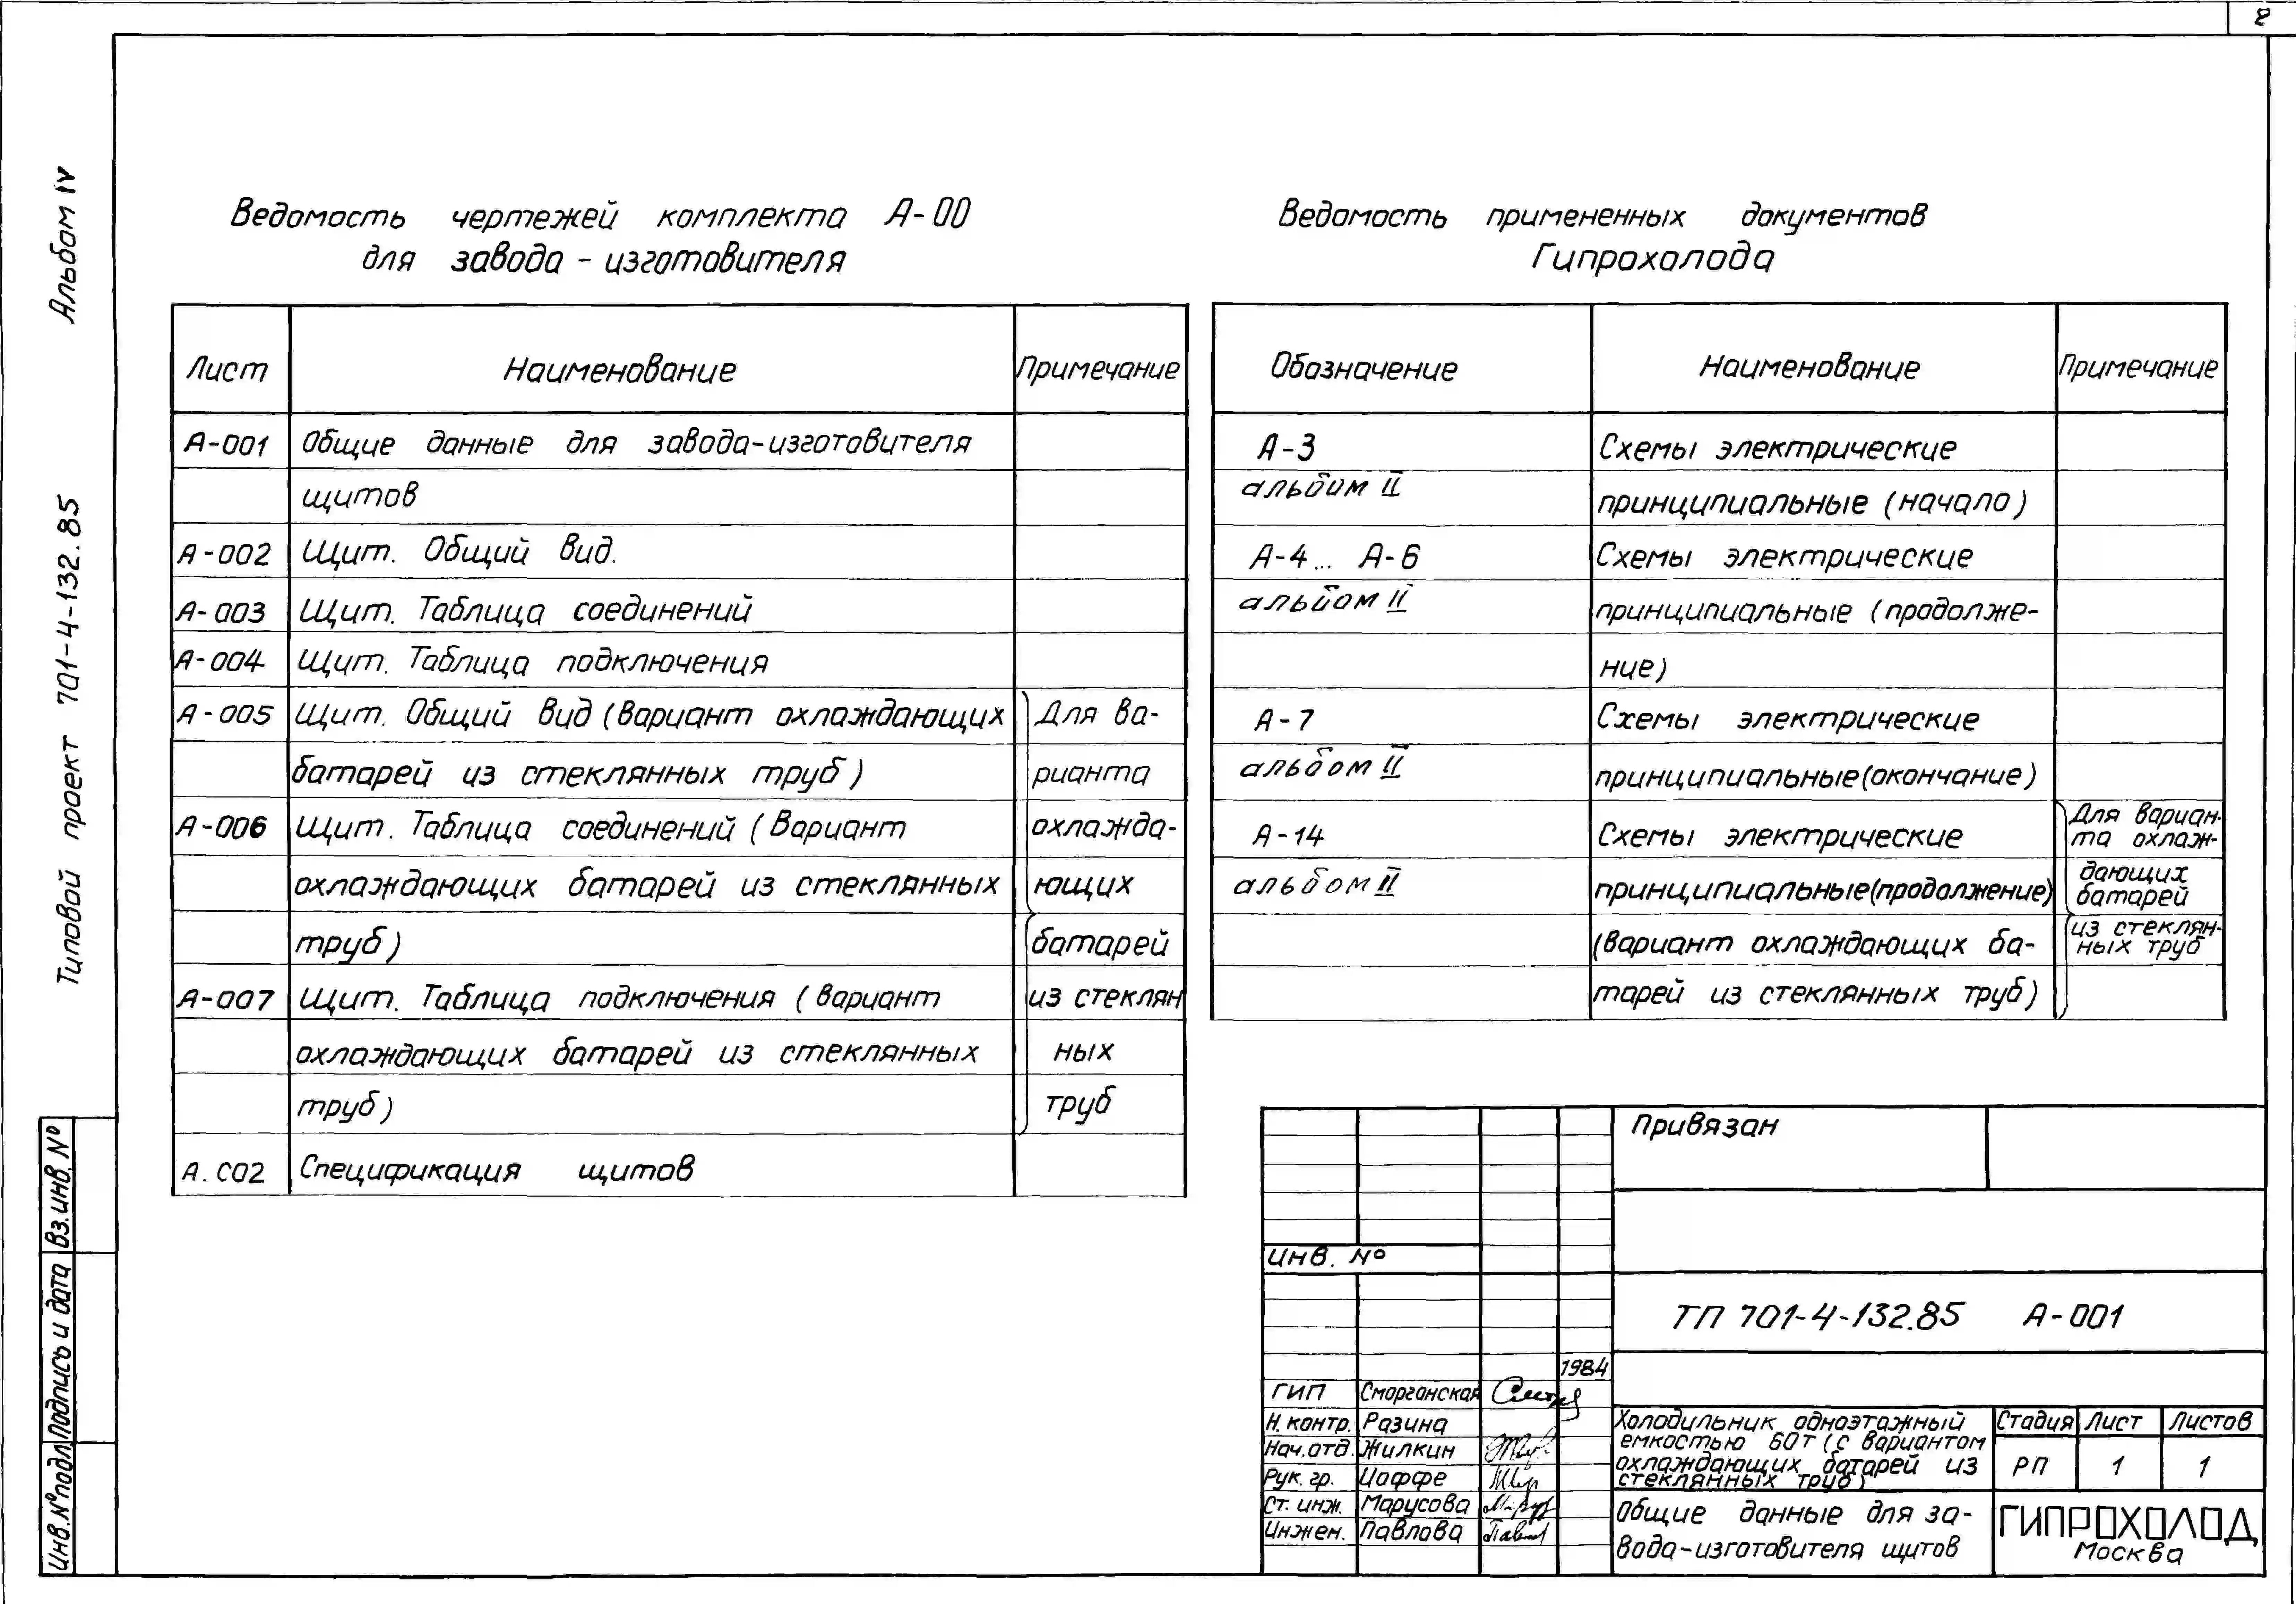 2
Альбом IV
Типовой проект 701-4-132.85
Ведомость чертежей комплекта А-00
для завода - изготовителя
Лист Наименование Примечание
А-001 Общие данные для завода-изготовителя
щитов
А-002 Щит. Общий вид.
А-003 Щит. Таблица соединений
А-004 Щит. Таблица подключения
А-005 Щит. Общий вид (Вариант охлаждающих Для ва-
батарей из стеклянных труб) рианта
А-006 Щит. Таблица соединений (Вариант охлажда-
охлаждающих батарей из стеклянных ющих
труб) батарей
А-007 Щит. Таблица подключения (вариант из стеклян
охлаждающих батарей из стеклянных ных
труб) труб
А.СО2 Спецификация щитов
Ведомость примененных документов
Гипрохолода
Обозначение Наименование Примечание
А-3 Схемы электрические
альбом II принципиальные (начало)
А-4... А-6 Схемы электрические
альбом II принципиальные (продолже-
ние)
А-7 Схемы электрические
альбом II принципиальные (окончание)
А-14 Схемы электрические Для вариан-
та охлаж-
альбом II принципиальные (продолжение) дающих
батарей
(вариант охлаждающих ба- из стеклян-
ных труб
тарей из стеклянных труб)
Привязан
Инв. №
ТП 701-4-132.85 А-001
1984
ГИП Сморганская
Н. контр. Разина
Нач. отд. Жилкин
Рук. гр. Иоффе
Ст. инж. Марусова
Инжен. Павлова
Холодильник одноэтажный
емкостью 60т (с вариантом
охлаждающих батарей из
стеклянных труб)
Стадия Лист Листов
РП 1 1
Общие данные для за-
вода-изготовителя щитов
ГИПРОХОЛОД
Москва
Инв.№подл. Подпись и дата Вз.инв.№